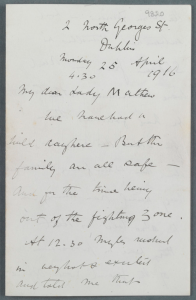 9320
2 North Georges St
Dublin
Monday 25 April
4.30 1916
My dear Lady Mathew
We have had a
wild day here — But the
family are all safe —
and for the time being
out of the fighting zone.
At 12.30 Myles rushed
in
excited
and told me that